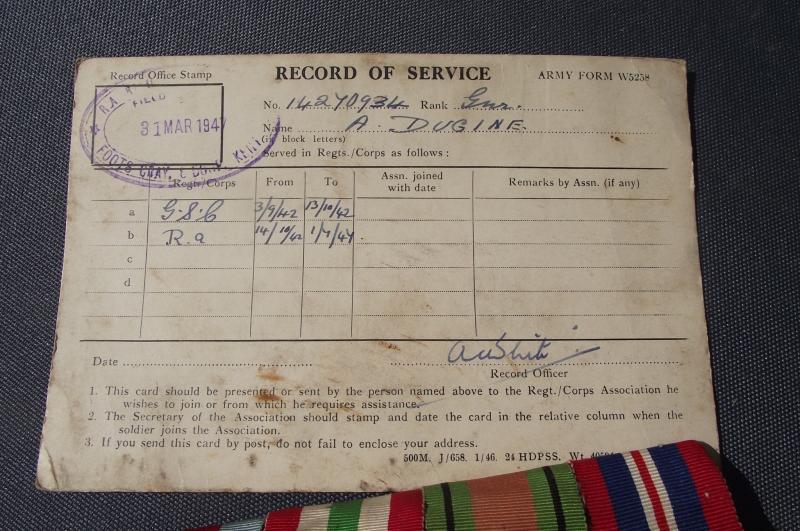 Record Office Stamp
RECORD OF SERVICE
ARMY FORM W5258
R.A.
FIELD
31 MAR 1947
FOOTS CRAY, KENT
No. 14270934 Rank Gnr.
Name A. DUGINE.
(in block letters)
Served in Regts./Corps as follows :
Regts./Corps From To Assn. joined with date Remarks by Assn. (if any)
a G.S.C 3/9/42 13/10/42
b R.a 14/10/42 1/7/47
c
d
Date
Record Officer
1. This card should be presented or sent by the person named above to the Regt./Corps Association he
wishes to join or from which he requires assistance.
2. The Secretary of the Association should stamp and date the card in the relative column when the
soldier joins the Association.
3. If you send this card by post, do not fail to enclose your address.
500M. J/658. 1/46. 24 HDPSS. Wt.